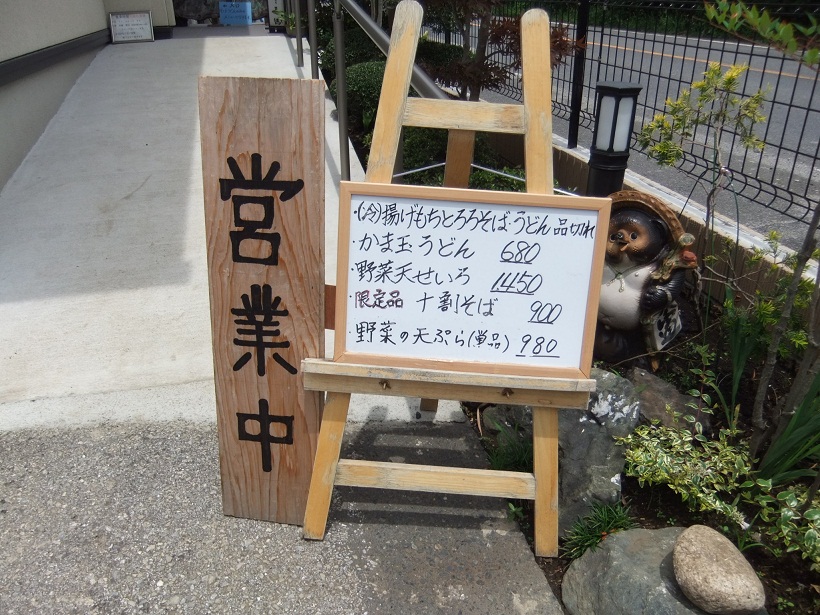 営業中
・(冷)揚げもちとろろそば・うどん 品切れ
・かま玉うどん 680
・野菜天せいろ 1450
・限定品 十割そば 900
・野菜の天ぷら(単品) 980